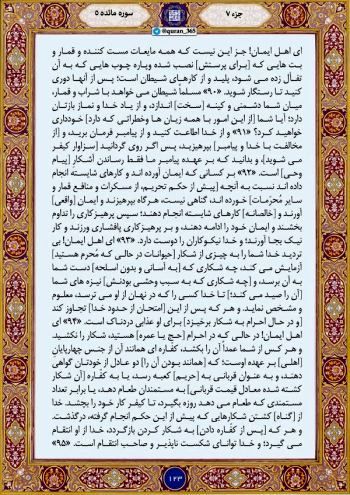 جزء ۷
@quran_365
سوره مائده ۵
ای اهل ایمان! جز این نیست که همه مایعات مست کننده و قمار و
بت هایی که [برای پرستش] نصب شده وپاره چوب هایی که به آن
تفأل زده می شود، پلید و از کارهای شیطان است؛ پس از آنها دوری
کنید تا رستگار شوید. «۹۰» مسلماً شیطان می خواهد با شراب و قمار،
میان شما دشمنی و کینه [سخت] اندازد، و از یاد خدا و نماز بازتان
دارد؛ آیا شما [از این امور با همه زیان ها وخطراتی که دارد] خودداری
خواهید کرد؟ «۹۱» و از خدا اطاعت کنید و از پیامبر فرمان برید، و [از
مخالفت با خدا و پیامبر] بپرهیزید. پس اگر روی گردانید [سزاوار کیفر
می شوید]، و بدانید که بر عهده پیامبر ما فقط رساندن آشکار [پیام
وحی] است. «۹۲» بر کسانی که ایمان آورده اند و کارهای شایسته انجام
داده اند نسبت به آنچه [پیش از حکم تحریم، از مسکرات و منافع قمار و
سایر مُحرّمات] خورده اند، گناهی نیست، هرگاه بپرهیزند و ایمان [واقعی]
آورند و [خالصانه] کارهای شایسته انجام دهند؛ سپس پرهیزکاری را تداوم
بخشند و ایمان خود را ادامه دهند، و بر پرهیزکاری پافشاری ورزند و کار
نیک بجا آورند؛ و خدا نیکوکاران را دوست دارد. «۹۳» ای اهل ایمان! بی
تردید خدا شما را به چیزی از شکار [حیوانات در حالی که مُحرم هستید]
آزمایش می کند، چه شکاری که [به آسانی و بدون اسلحه] دست شما
به آن برسد، و [چه شکاری که به سبب وحشی بودنش] نیزه های شما
[آن را صید می کند]؛ تا خدا کسی را که در نهان از او می ترسد، معلوم
و مشخص نماید. و هر که پس از این [امتحان از حدود خدا] تجاوز کند
[و در حال احرام به شکار برخیزد] برای او عذابی دردناک است. «۹۴» ای
اهل ایمان! در حالی که در احرام [حج یا عمره] هستید، شکار را نکشید.
و هر کس از شما عمداً آن را بکشد، کفّاره ای همانند آن از جنس چهارپایان
[اهلی] بر عهده اوست؛ که [همانند بودن آن را] دو عادل از خودتان گواهی
دهند، و به عنوان قربانی به [حریم] کعبه رسد، یا به کفّاره [آن شکارِ
کشته شده معادل قیمت قربانی] به مستمندان طعام دهد، یا برابر تعداد
مستمندی که طعام می دهد روزه بگیرد، تا کیفر کار خود را بچشد. خدا
از [گناه] کشتن شکارهایی که پیش از این حکم انجام گرفته، درگذشت.
و هر که [پس از کفّاره دادن] به شکار کردن بازگردد، خدا از او انتقام
می گیرد؛ و خدا توانای شکست ناپذیر و صاحب انتقام است. «۹۵»
۱۲۳